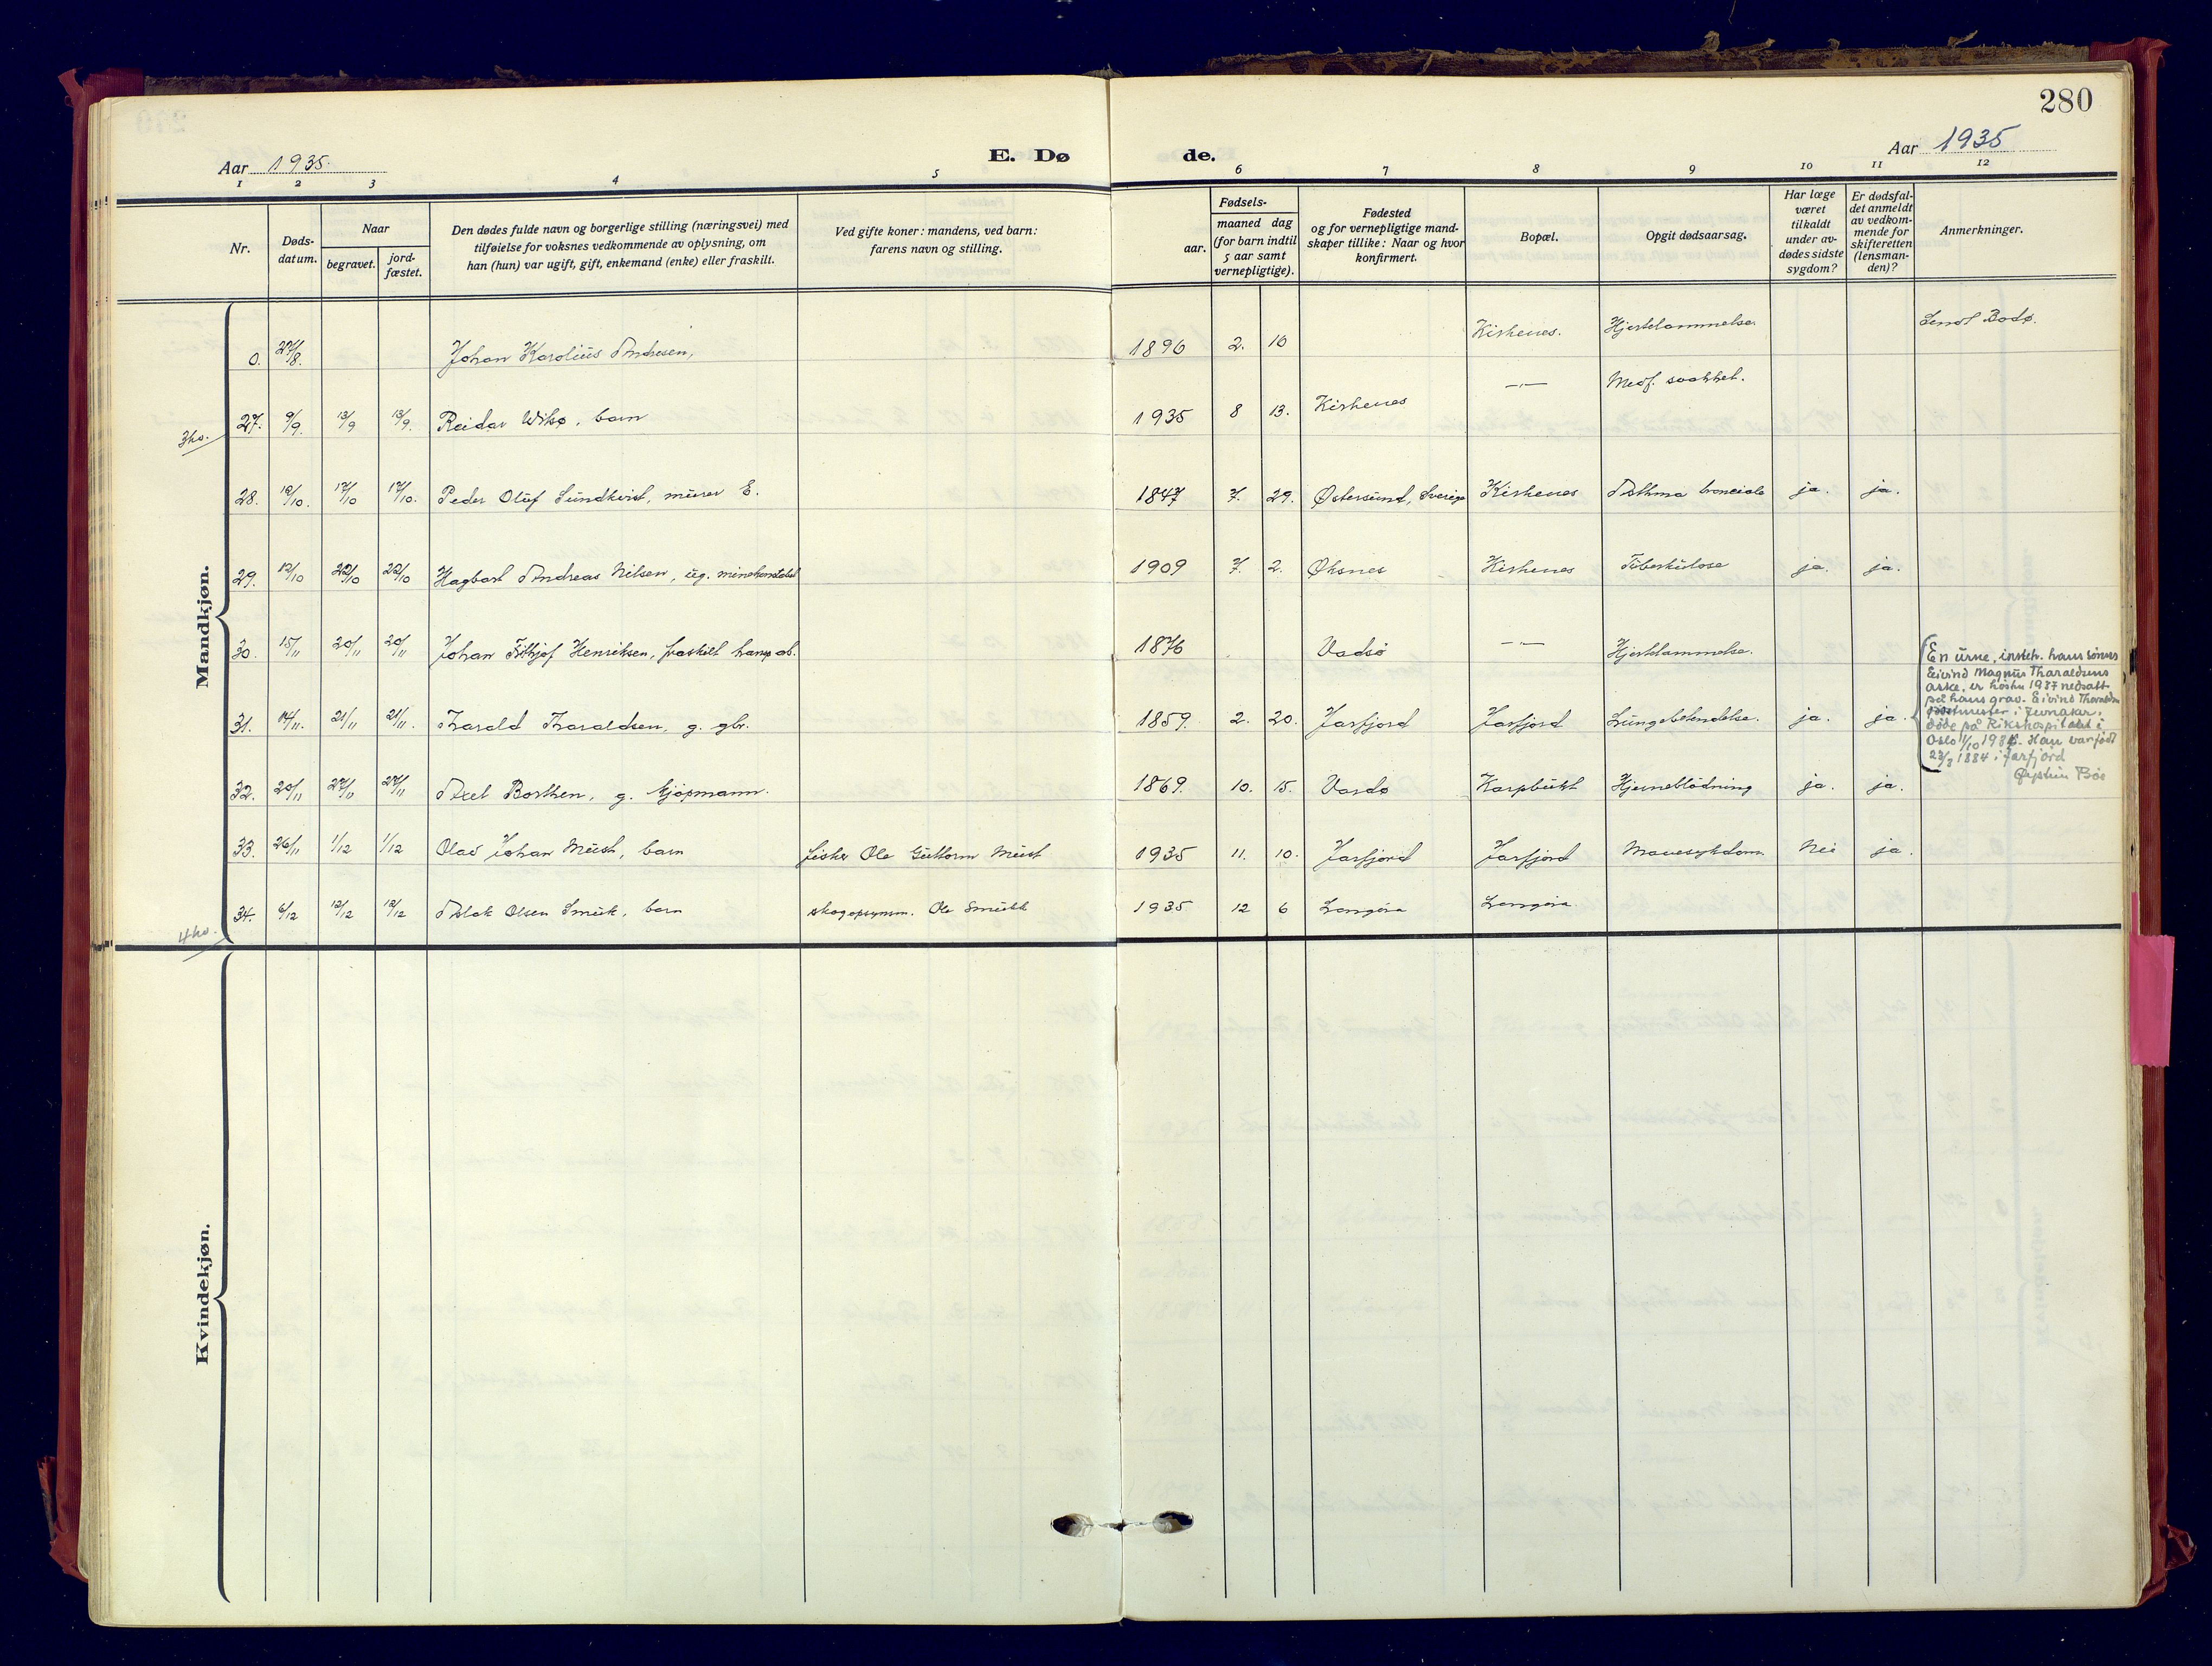 280
Aar 1935. E. Dø de. Aar 1935
1 2 3 4 5 6 7 8 9 10 11 12
Nr.
Døds-
datum.
Naar
begravet.
jord-
fæstet.
Den dødes fulde navn og borgerlige stilling (næringsvei) med
tilføielse for voksnes vedkommende av oplysning, om
han (hun) var ugift, gift, enkemand (enke) eller fraskilt.
Ved gifte koner: mandens, ved barn:
farens navn og stilling.
Fødsels-
aar.
maaned dag
(for barn indtil
5 aar samt
vernepligtige).
Fødested
og for vernepligtige mand-
skaper tillike: Naar og hvor
konfirmert.
Bopæl.
Opgit dødsaarsag.
Har læge
været
tilkaldt
under av-
dødes sidste
sygdom?
Er dødsfal-
det anmeldt
av vedkom-
mende for
skifteretten
(lensman-
den)?
Anmerkninger.
Mandkjøn.
0. 27/8. Johan Karolius Andresen, 1896 2. 16 Kirkenes. Hjertelammelse. Sendt Bodø.
3 ko.
27. 9/9. 13/9 13/9. Reidar Wikø, barn 1935 8 13. Kirkenes —"— Medf. svakhet.
28. 12/10. 17/10 17/10. Peder Oluf Sundkvist, murer E. 1847 7. 29. Østersund, Sverige Kirkenes Asthma bronciale ja. ja.
29. 12/10 22/10 22/10 Hagbart Andreas Nilsen, ug. minekonstabel 1909 7. 2. Øksnes Kirkenes Tuberkulose ja. ja.
30. 15/11 20/11 20/11 Johan Fithjof Henriksen, fraskilt havnearb. 1876 Vadsø —"— Hjertelammelse.
31. 14/11. 21/11 21/11. Harald Haraldsen, g. gbr. 1859. 2. 20. Jarfjord Jarfjord Lungebetendelse. ja. ja.
En urne, inneh. hans sønns
Eivind Magnus Tharaldsens
aske, er høsten 1987 nedsatt
på hans grav. Eivind Tharaldsen
postmester i Jevnaker,
døde på Rikshospitalet i
Oslo 1/10 1986. Han var født
23/3 1884 i Jarfjord
Øystein Bøe
32. 20/11 27/11 27/11 Axel Borthen, g. kjøpmann. 1869. 10. 15. Vardø Karpbukt Hjerneblødning ja. ja.
33. 26/11 1/12 1/12 Olav Johan Must, barn fisker Ole Guttorm Must 1935 11. 10. Jarfjord Jarfjord Mavesykdom. Nei ja.
34. 6/12 12/12 12/12 Aslak Olsen Smuk, barn skogopsynsm. Ole Smukk 1935 12 6 Langøra Langøra.
4 ko.
Kvindekjøn.